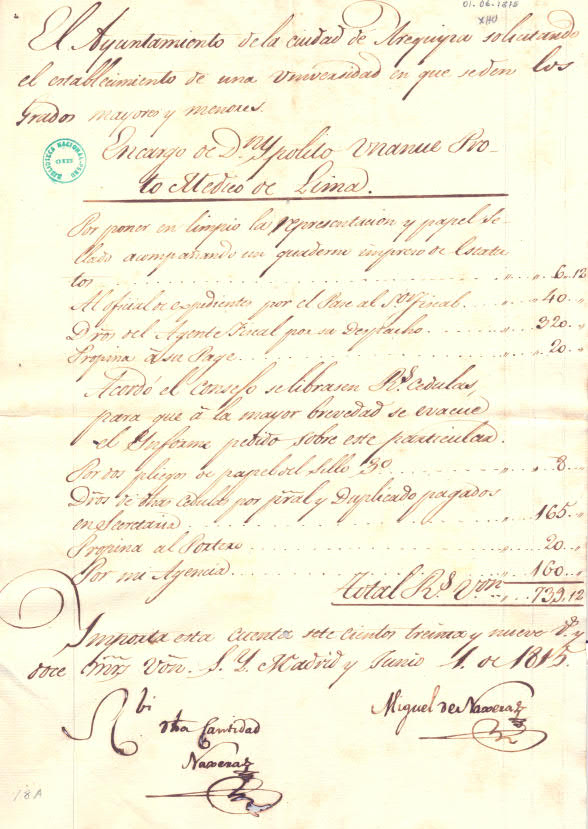 01.06.1815
XHU
El Ayuntamiento de la ciudad de Arequipa solicitando
el establecimiento de una Universidad en que se den los
Grados mayores y menores.
BIBLIOTECA NACIONAL PERU
Encargo de Dn. Ypolito Unanue Pro-
to Medico de Lima.
Por poner en limpio la representacion y papel Se-
llado acompañando un quaderno impreso de Estatu-
tos 6..12
Al oficial de expedientes por el Pase al Sor. Fiscal 40
Dros del Agente Fiscal por su Despacho 320
Propina â su Page 20
Acordó el Consejo se librasen Rs. cedulas,
para que â la mayor brevedad se evacue
el Informe pedido sobre este particular.
Por dos pliegos de papel del Sello 3o. 8
Dros de dhas Cedulas por pral y Duplicado pagados
en Secretaria 165
Propina al Portero 20
Por mi Agencia 160
Total Rs. Von. 739.12
Importa esta cuenta sete cientos treinta y nueve Rs. y
doce mrs Von. S. Y. Madrid y Junio 1. de 1815.
Miguel de Naxera
Rbi
dha Cantidad
Naxera
18A